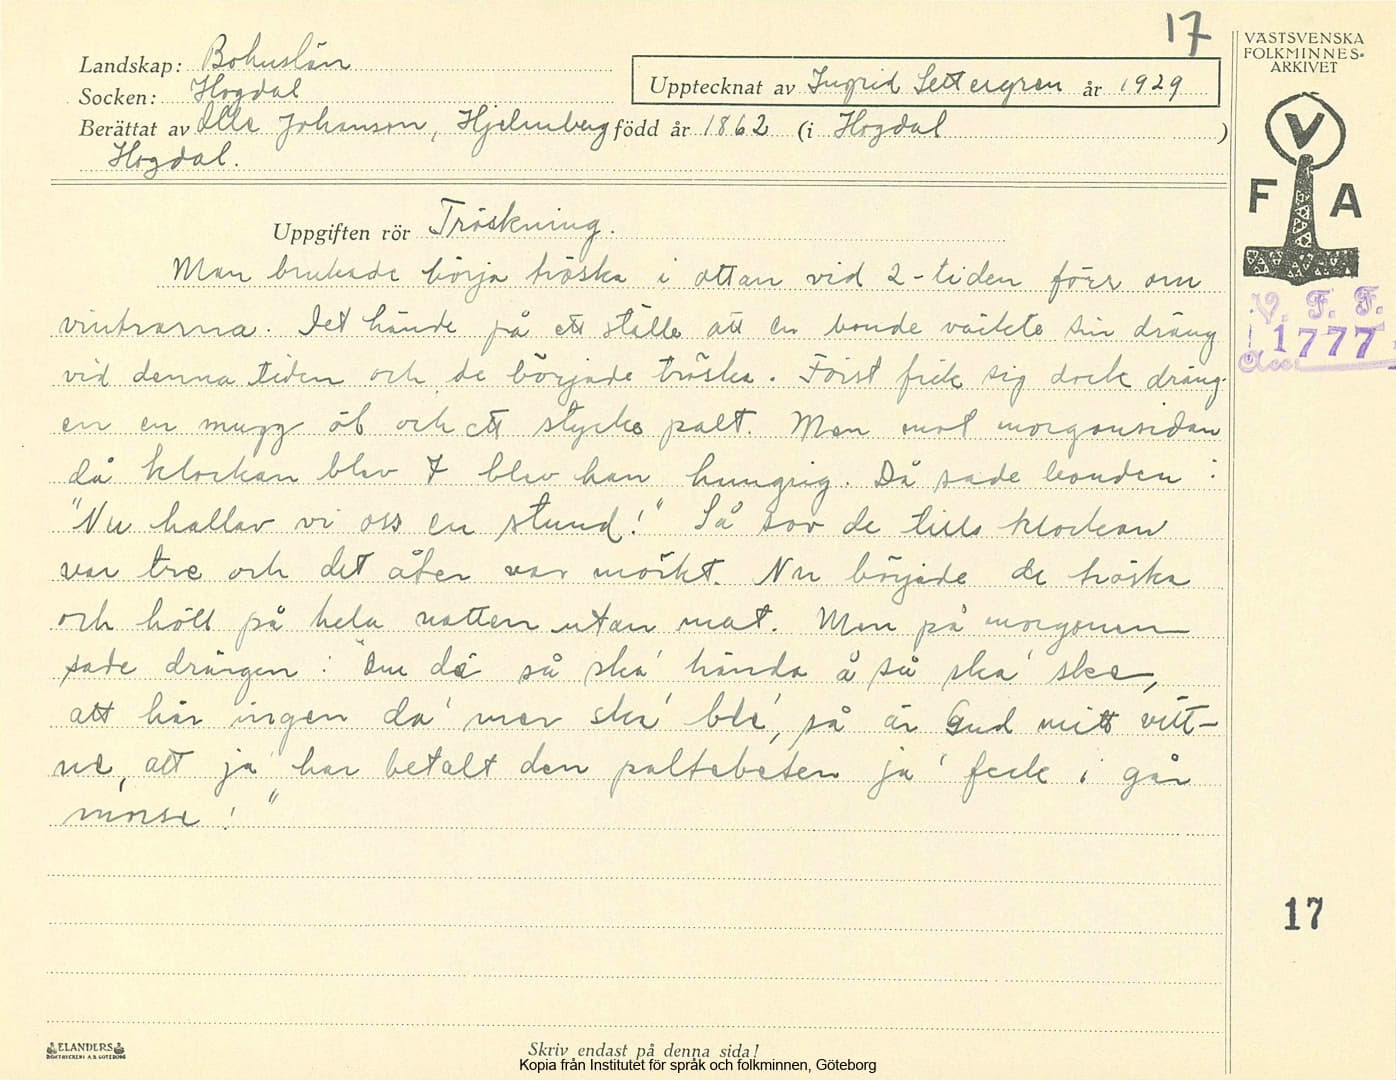 17
Landskap: Bohuslän
Socken: Hogdal
Upptecknat av Ingrid Settergren år 1929
Berättat av Olle Johansson, Hjelmberg född år 1862 (i Hogdal )
Hogdal.
VÄSTSVENSKA
FOLKMINNES-
ARKIVET
V
F A
V. F. F.
1777
Acc
Uppgiften rör Tröskning.
Man brukade börja tröska i ottan vid 2-tiden förr om
vintrarna. Det hände på ett ställe att en bonde väckte sin dräng
vid denna tiden och de började tröska. Först fick sig dock dräng-
en en mugg öl och ett stycke palt. Men mot morgonsidan
då klockan blev 7 blev han hungrig. Då sade bonden:
"Nu hallar vi oss en stund!" Så sov de tills klockan
var tre och det åter var mörkt. Nu började de tröska
och höll på hela natten utan mat. Men på morgonen
sade drängen: "Om dä så ska' hända å så ska' ske,
att här ingen da' mer ska' ble', så är Gud mitt vitt-
ne, att ja' har betalt den paltabeten ja' feck i går
morse!"
17
ELANDERS
BOKTRYCKERI A.B. GÖTEBORG
Skriv endast på denna sida!
Kopia från Institutet för språk och folkminnen, Göteborg